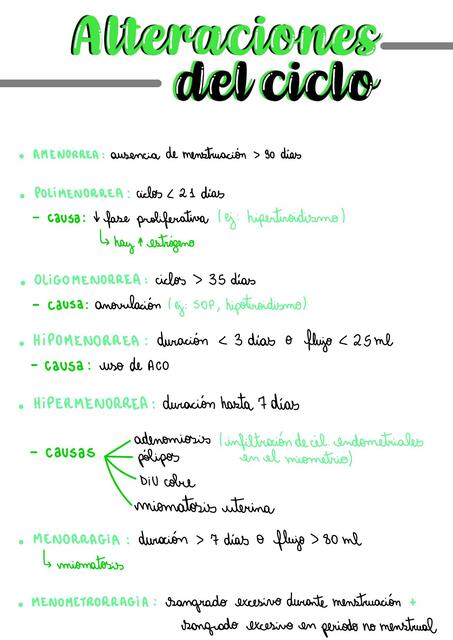 Alteraciones
del ciclo
• AMENORREA: ausencia de menstruación > 90 días
• POLIMENORREA: ciclos < 21 días
- CAUSA: ↓ fase proliferativa (ej: hipertiroidismo)
↳ hay ↑ estrógeno
• OLIGOMENORREA: ciclos > 35 días
- CAUSA: anovulación (ej: SOP, hipotiroidismo)
• HIPOMENORREA: duración < 3 días o flujo < 25 ml
- CAUSA: uso de ACO
• HIPERMENORREA: duración hasta 7 días
- CAUSAS
adenomiosis (infiltración de cél. endometriales
en el miometrio)
pólipos
DIU cobre
miomatosis uterina
• MENORRAGIA: duración > 7 días o flujo > 80 ml
↳ miomatosis
• MENOMETRORRAGIA: sangrado excesivo durante menstruación +
sangrado excesivo en periodo no menstrual